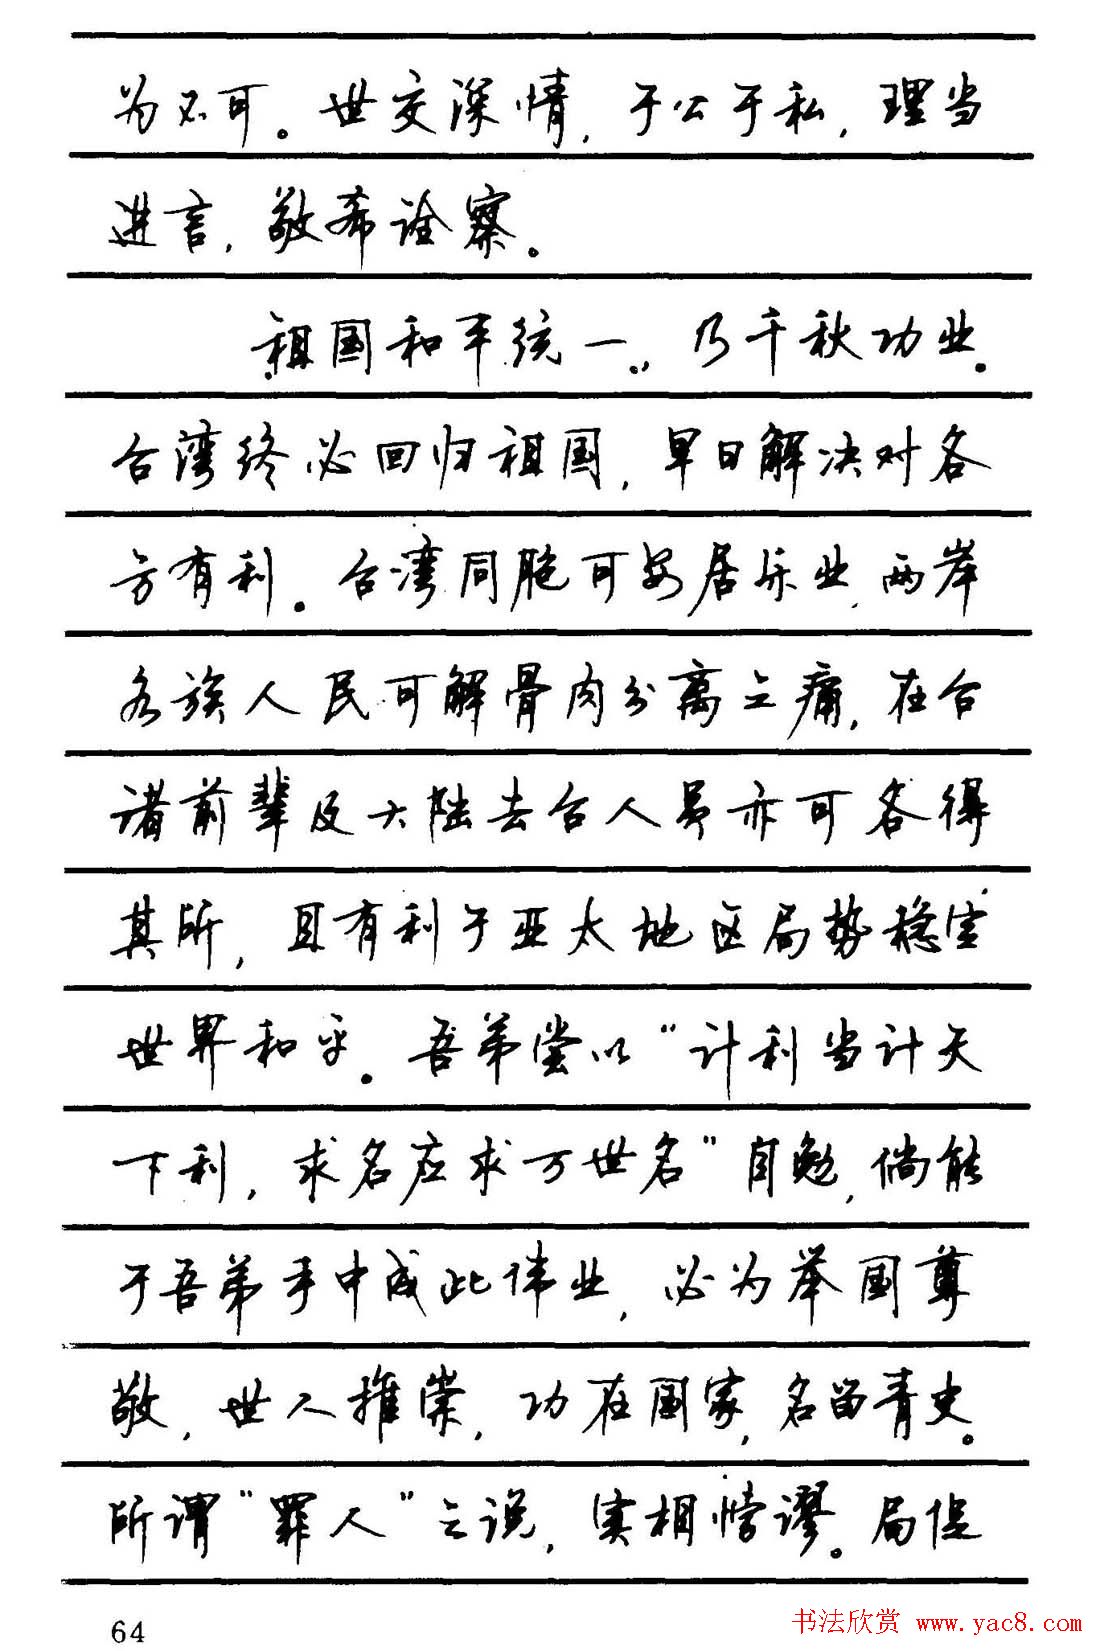 为不可。世交深情，于公于私，理当
进言，敬希诠察。
祖国和平统一，乃千秋功业。
台湾终必回归祖国，早日解决对各
方有利。台湾同胞可安居乐业，两岸
各族人民可解骨肉分离之痛，在台
诸前辈及大陆去台人员亦可各得
其所，且有利于亚太地区局势稳定
世界和平。吾弟尝以“计利当计天
下利，求名应求万世名”自勉，倘能
于吾弟手中成此伟业，必为举国尊
敬，世人推崇，功在国家，名留青史。
所谓“罪人”之说，实相悖谬。局促
64
书法欣赏 www.yac8.com